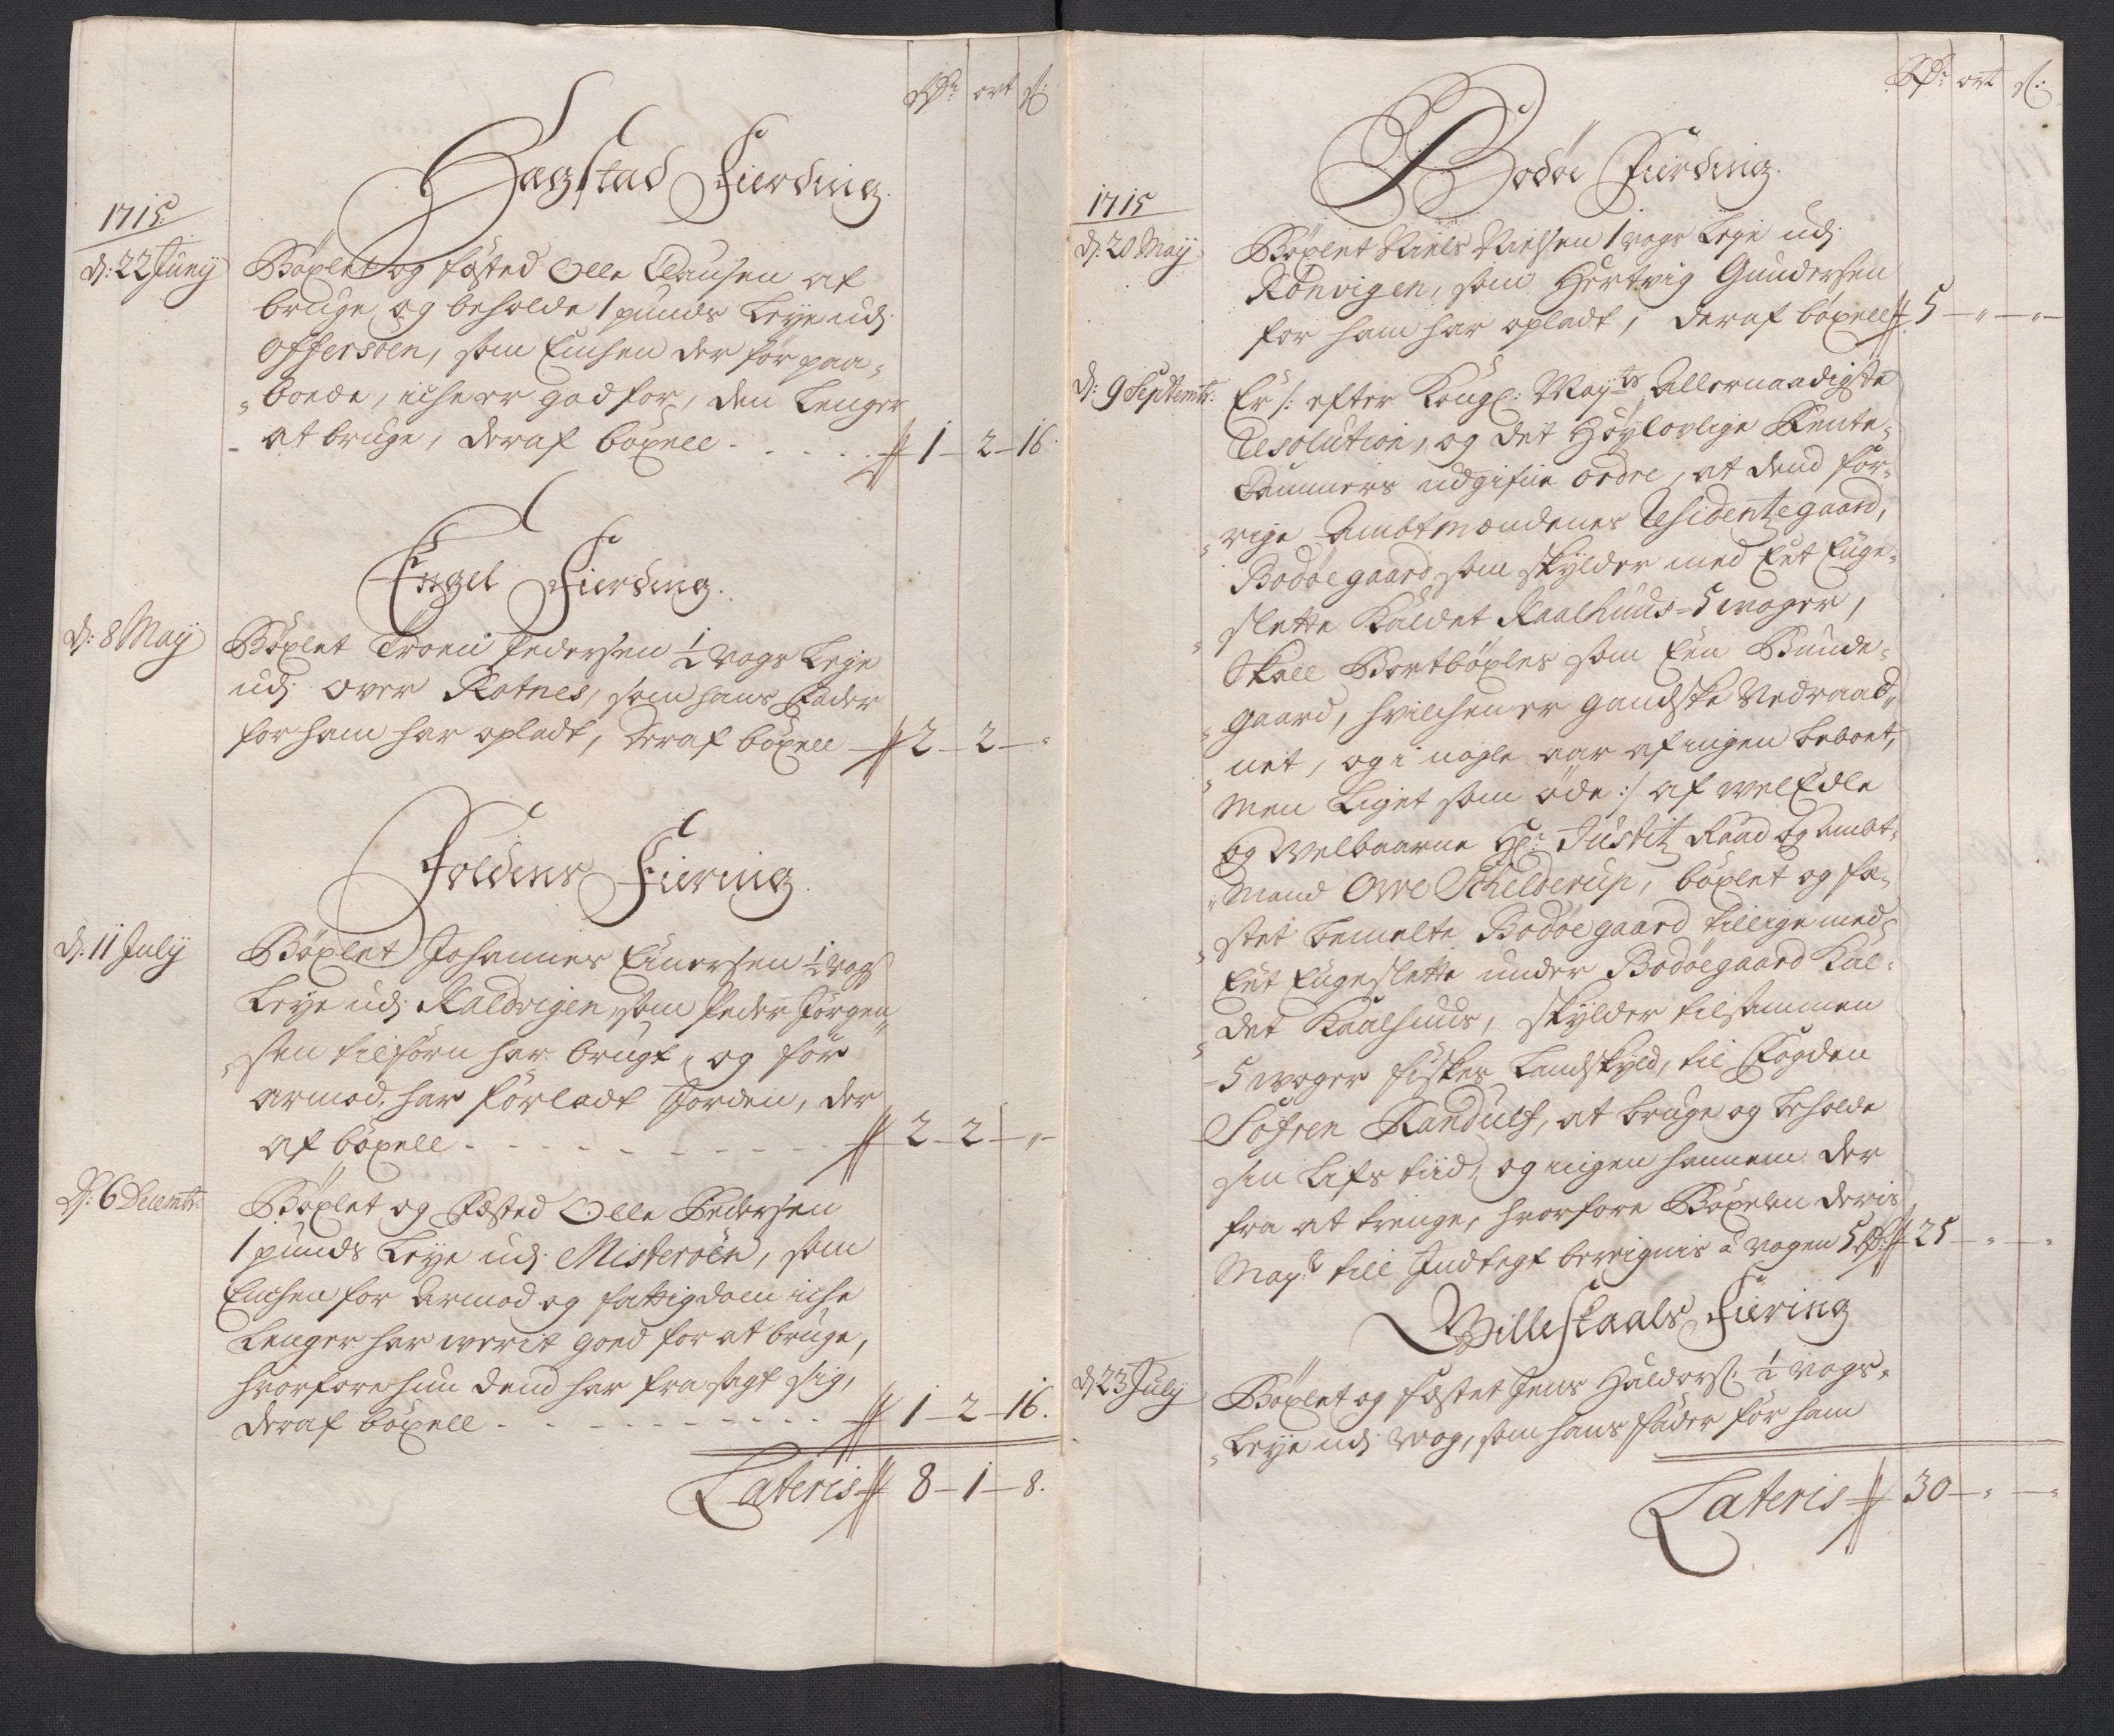 Rdr ort s:
Hagstad Fierding.
1715.
d: 22 Junij
Böxlet og fæsted Olle Clausen at
bruge og beholde 1 punds Leye udj
Offersøen, som Enchen der for paa-
boede, iche er god for, den Lenger
at bruge, deraf böxell - - - - 1 - 2 - 16.
Engel Fierding.
d: 8 Maij
Böxlet Troen Pedersen ½ vogs Leye
udj over Kotnes, som hans Fader
for ham har opladt, deraf böxell - 2 - 2 - "
Foldens Fiering.
d: 11 July
Böxlet Johannes Einersen ½ vogs
Leye udj Kaldvigen, som Peder Jörgen-
sen tilforn har brugt, og for
armod, har forladt Jorden, der
af böxell - - - - - - - - - 2 - 2 - " -
d: 6 Decembr:
Böxlet og Fæsted Olle Pedersen
1 punds Leye udj Misterøen, som
Enchen for armod og fattigdom iche
Lenger har werit goed for at bruge,
hvorfore hun dend har fra sagt sig,
deraf böxell - - - - - - - - - 1 - 2 - 16.
Lateris 8 - 1 - 8.
Rdr ort s:
Bodøe Fierding.
1715
d: 20 Maij
Böxlet Niels Nielsen 1 vogs Leye udj
Rönvigen, som Hertvig Gundersen
for ham har opladt, deraf böxell 5 - " - " -
d: 9 Septembr:
Er /: efter Kongl: Mayts Allernaadigste
Resolution, og det Höylovlige Rente-
Cammers udgifne ordre, at dend for-
rige Ambtmændenes Residentzegaard,
Bodøegaard som skylder med Eet Enge-
slette Kaldet Kaalhuus - 5 woger,
Skall Bortböxles som Een Bunde-
gaard, hvilchen er gandske Nedraad-
net, og i nogle aar af ingen beboet,
men Liget som öde :/ af welEdle
og Welbaarne Hr: Justitz Raad og Ambt-
mand Ovre Schelderup, böxlet og fæ-
stet bemelte Bodøegaard tillige med
Eet Engeslette under Bodøegaard Kal-
det Kaalhuus, skylder tilsammen
- 5 woger fiskes Landskyld, til Fogden
Søfren Randulf, at bruge og beholde
sin Lifs tiid, og ingen hannem der
fra at trenge, hvorfore Böxelen deris
Mayt: till Indtegt beregnis a vogen 5 Rdr 25 - " - "
Willeskaals Fiering
d: 23 July
Böxlet og fæstet Jens Haldors: ½ vogs-
Leye udj Wog, som hans Fader for ham
Lateris 30 - " - "